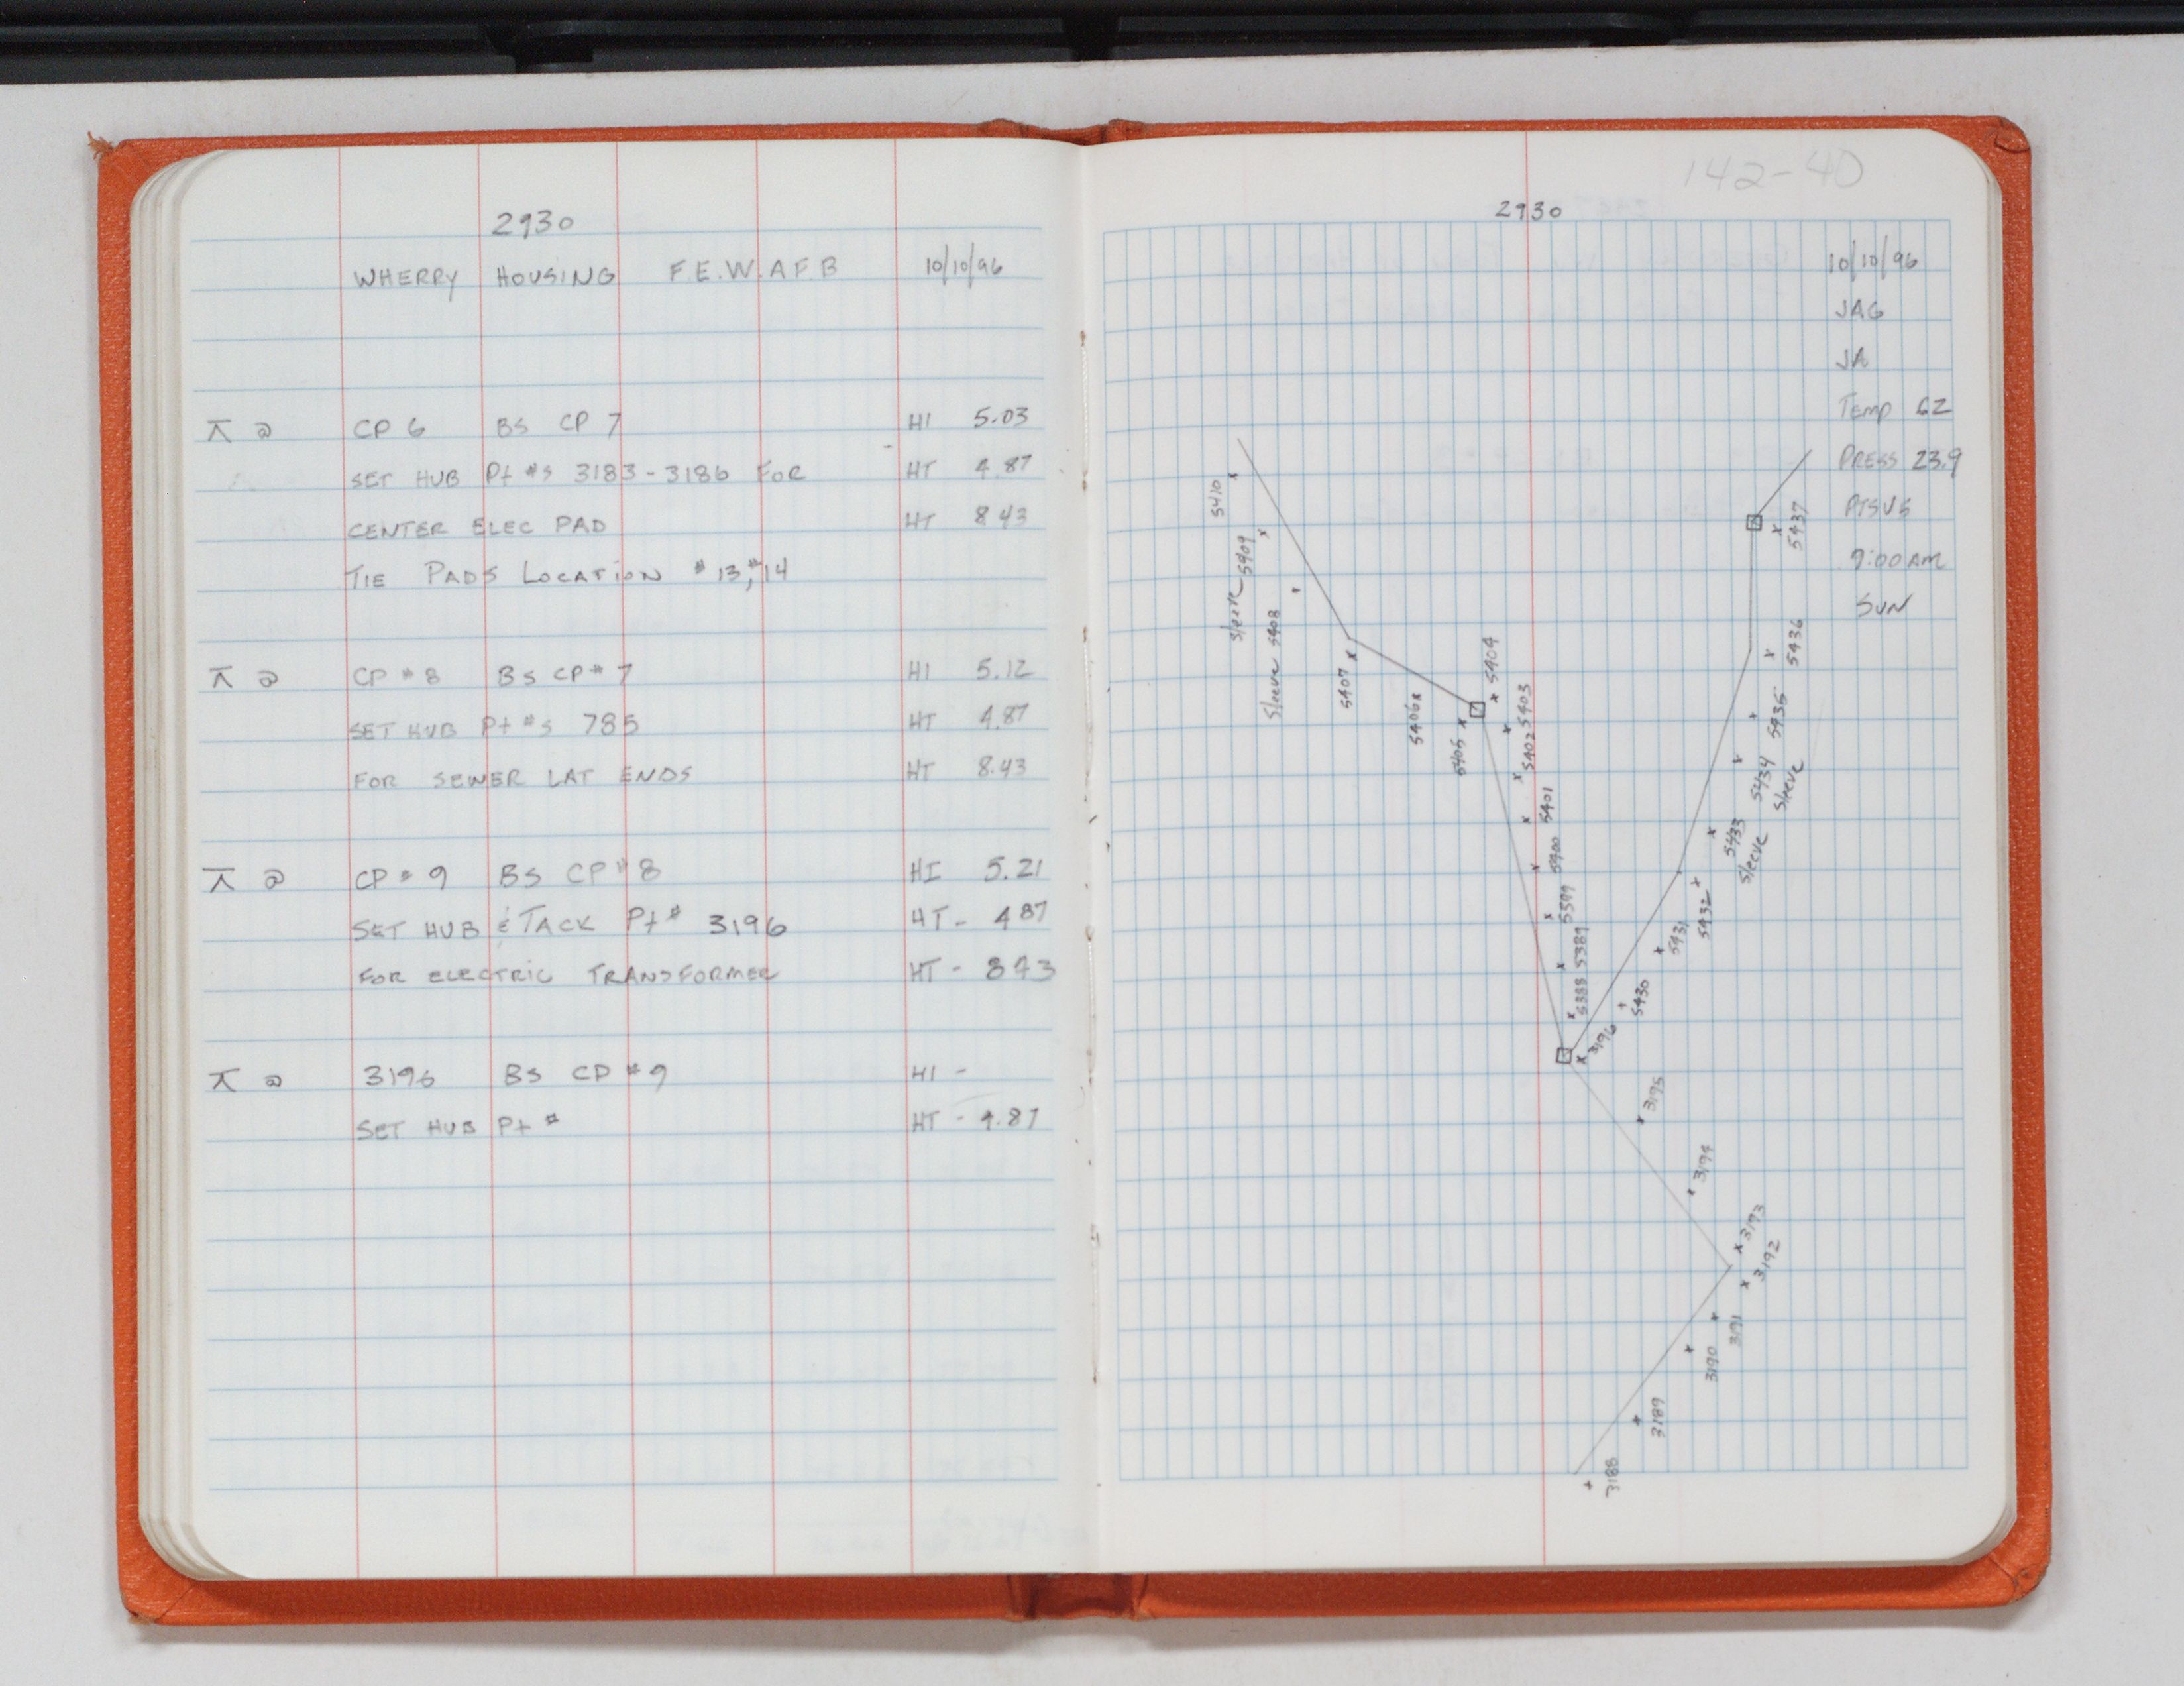 2930
WHERRY HOUSING F.E.W.A.F.B 10/10/96
⊼ @ CP 6 BS CP 7 HI 5.03
SET HUB Pt #s 3183-3186 FOR HT 4.87
CENTER ELEC PAD HT 8.43
TIE PADS LOCATION #13, #14
⊼ @ CP #8 BS CP #7 HI 5.12
SET HUB Pt #s 785 HT 4.87
FOR SEWER LAT ENDS HT 8.43
⊼ @ CP #9 BS CP #8 HI 5.21
SET HUB & TACK Pt # 3196 HT - 4.87
FOR ELECTRIC TRANSFORMER HT - 8.43
⊼ @ 3196 BS CP #9 HI -
SET HUB Pt # HT - 4.87
142-40
2930
10/10/96
JAG
JA
Temp 62
PRESS 23.9
9:00 AM
SUN
5410
5409
Sleeve
5408
Sleeve
5407
5406
5405
5404
5403
5402
5401
5400
5399
5389
5388
3196
5430
5431
5432
5433
Sleeve
5434
Sleeve
5435
5436
5437
3195
3194
3193
3192
3191
3190
3189
3188